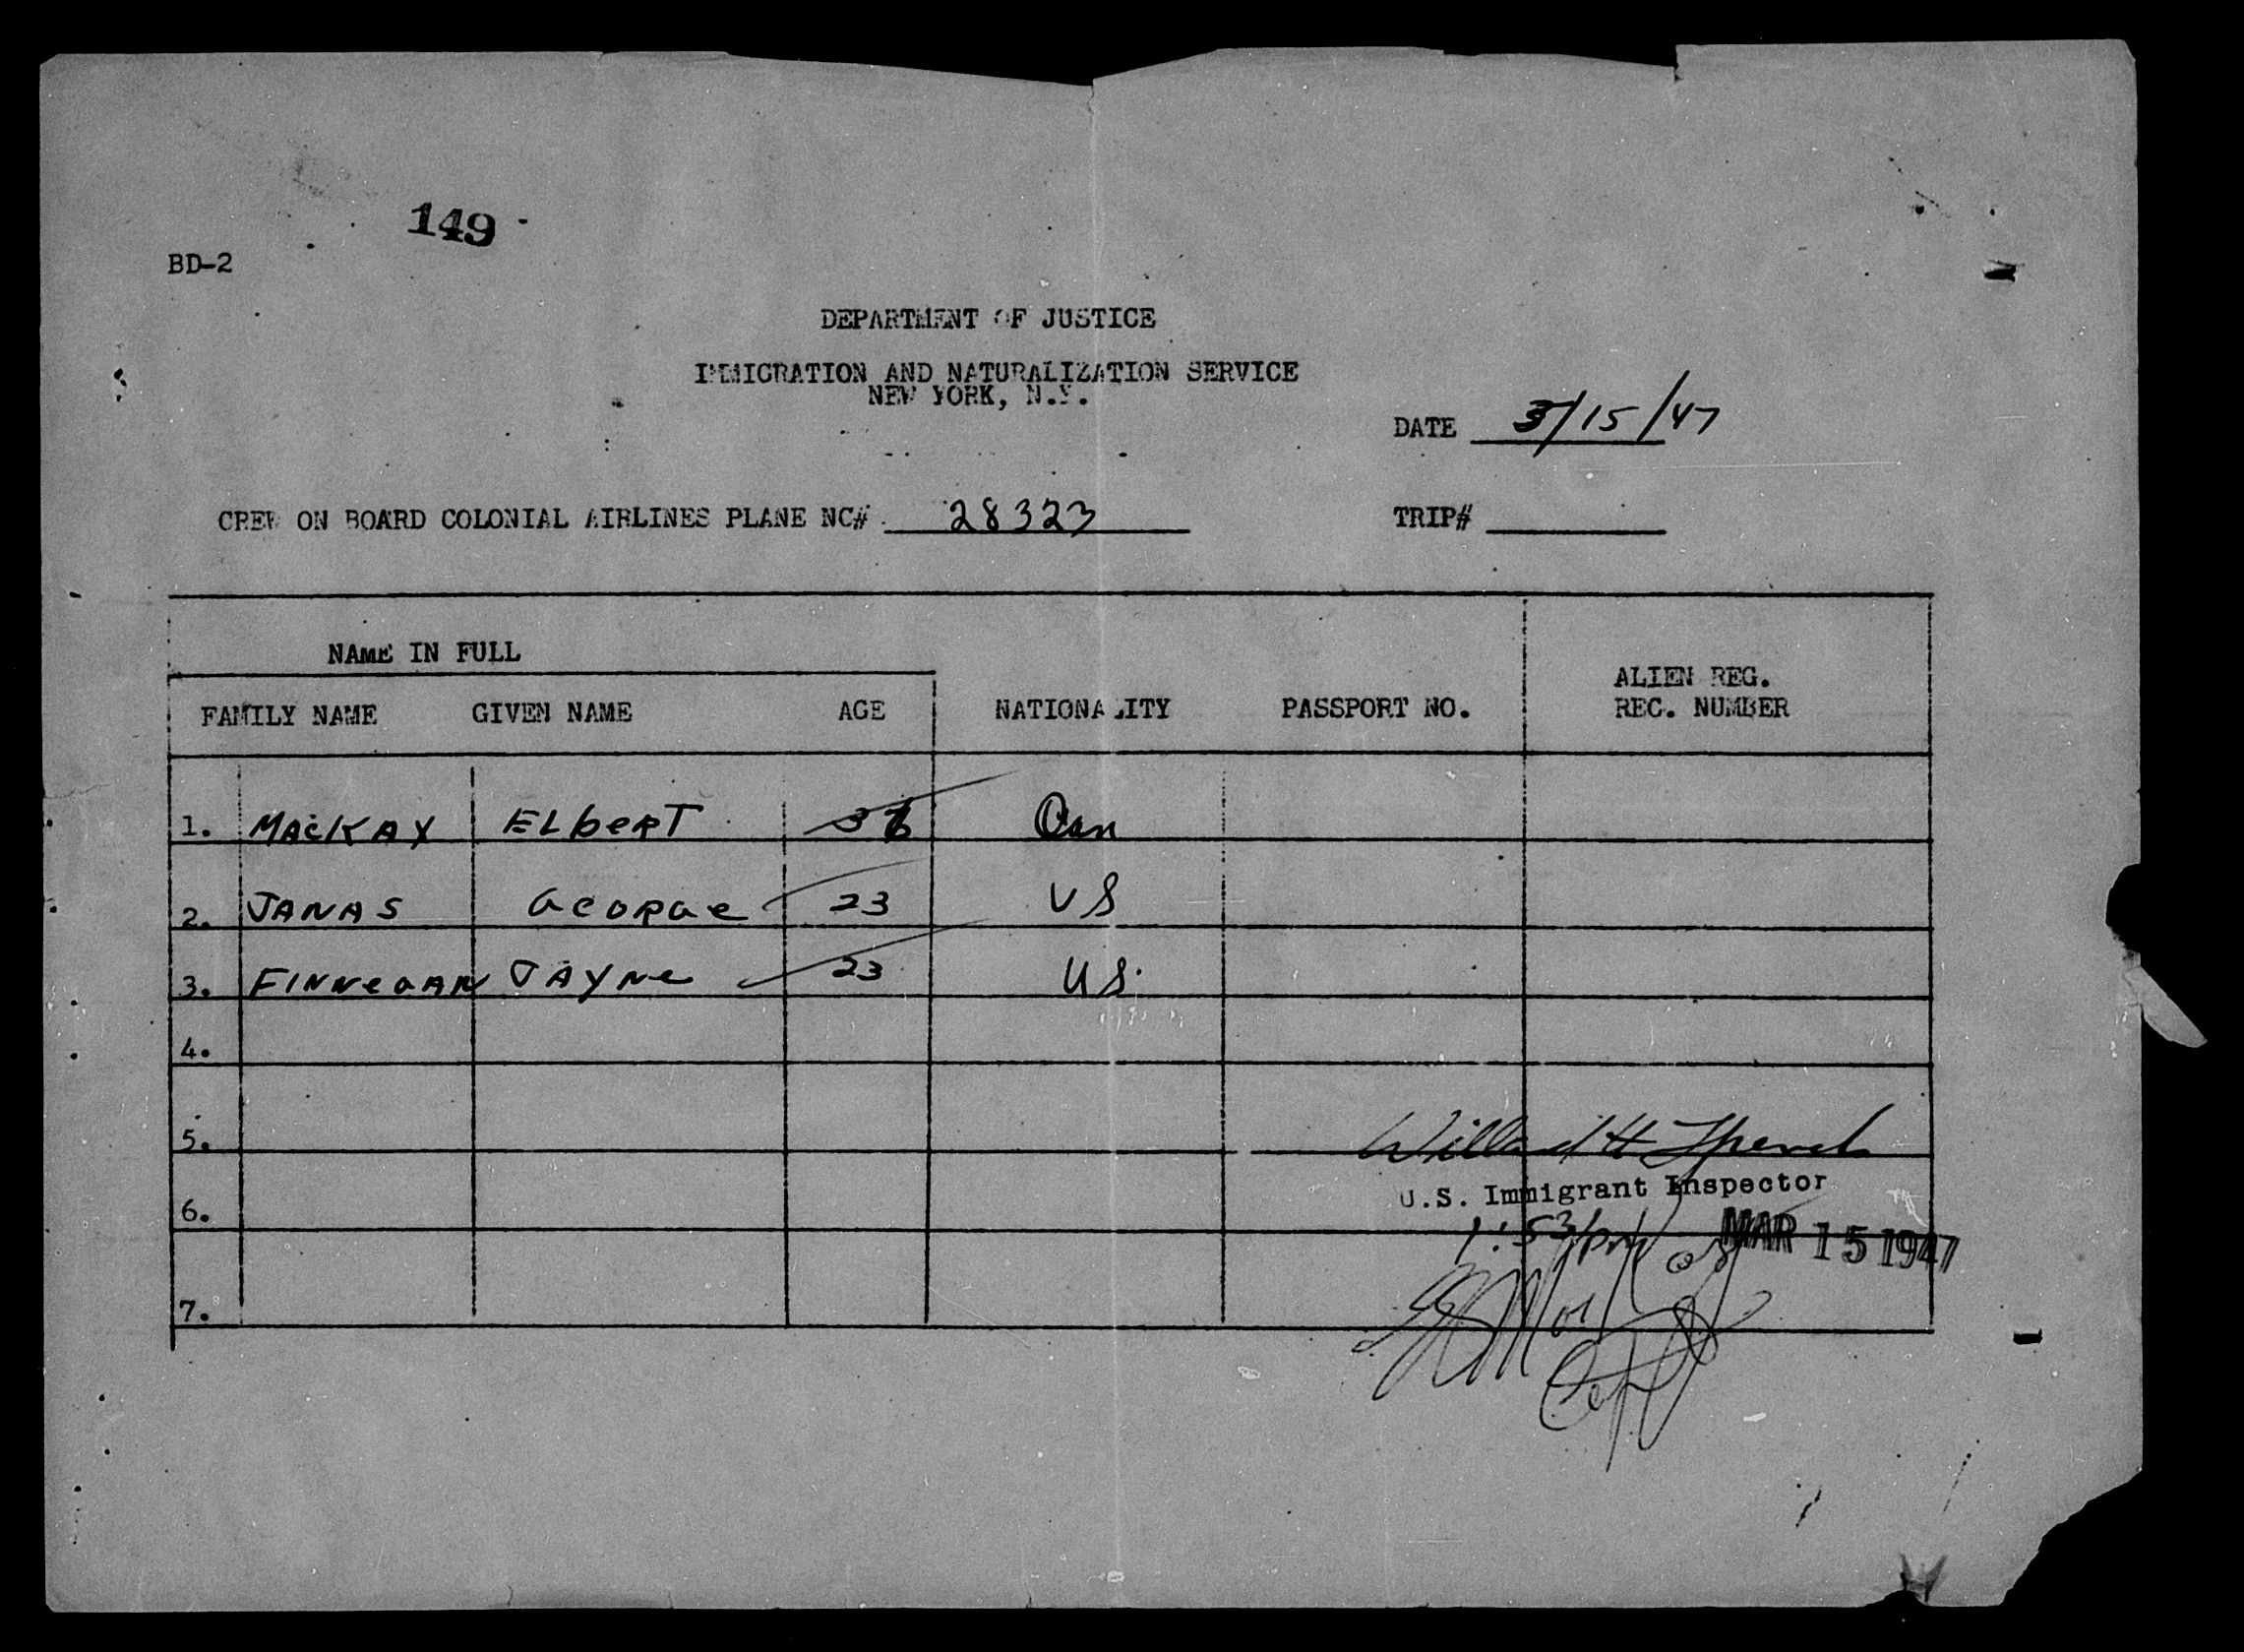 149
BD-2
DEPARTMENT OF JUSTICE
IMMIGRATION AND NATURALIZATION SERVICE
NEW YORK, N.Y.
DATE 3/15/47
CREW ON BOARD COLONIAL AIRLINES PLANE NC# 28323 TRIP#
NAME IN FULL
FAMILY NAME GIVEN NAME AGE NATIONALITY PASSPORT NO. ALIEN REG. REC. NUMBER
1. MacKAY ELbeRT Can
2. JANAS GeORGe 23 US
3. FINNeGAN JAYNe 23 US
4.
5. Willard H
U.S. Immigrant Inspector
6.
MAR 15 1947
7.